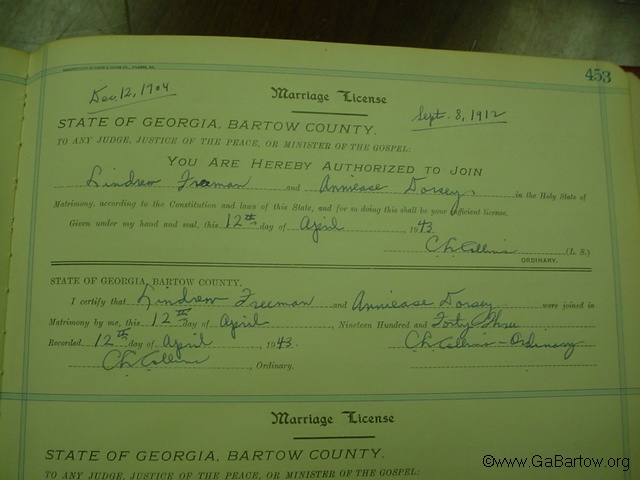 453
Dec. 12, 1904
Marriage License
Sept. 8, 1912
STATE OF GEORGIA, BARTOW COUNTY.
TO ANY JUDGE, JUSTICE OF THE PEACE, OR MINISTER OF THE GOSPEL:
YOU ARE HEREBY AUTHORIZED TO JOIN
Lindrew Freeman and Anniease Dorsey, in the Holy State of
Matrimony, according to the Constitution and laws of this State, and for so doing this shall be your sufficient license.
Given under my hand and seal, this 12th day of April 1943
C.h. Collins (L. S.)
ORDINARY.
STATE OF GEORGIA, BARTOW COUNTY.
I certify that Lindrew Freeman and Anniease Dorsey were joined in
Matrimony by me, this 12th day of April, Nineteen Hundred and Forty Three
Recorded, 12th day of April, 1943. C.h. Collins - Ordinary
C.h. Collins, Ordinary.
Marriage License
STATE OF GEORGIA, BARTOW COUNTY.
TO ANY JUDGE, JUSTICE OF THE PEACE, OR MINISTER OF THE GOSPEL:
©www.GaBartow.org